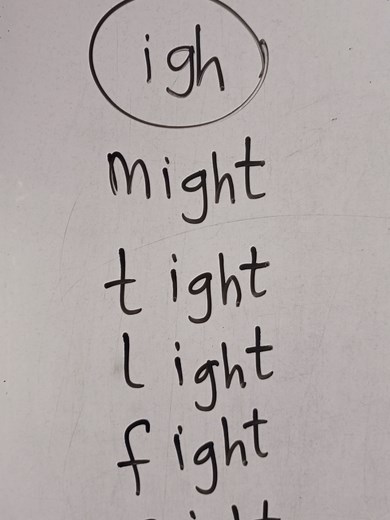 igh
might
tight
light
fight